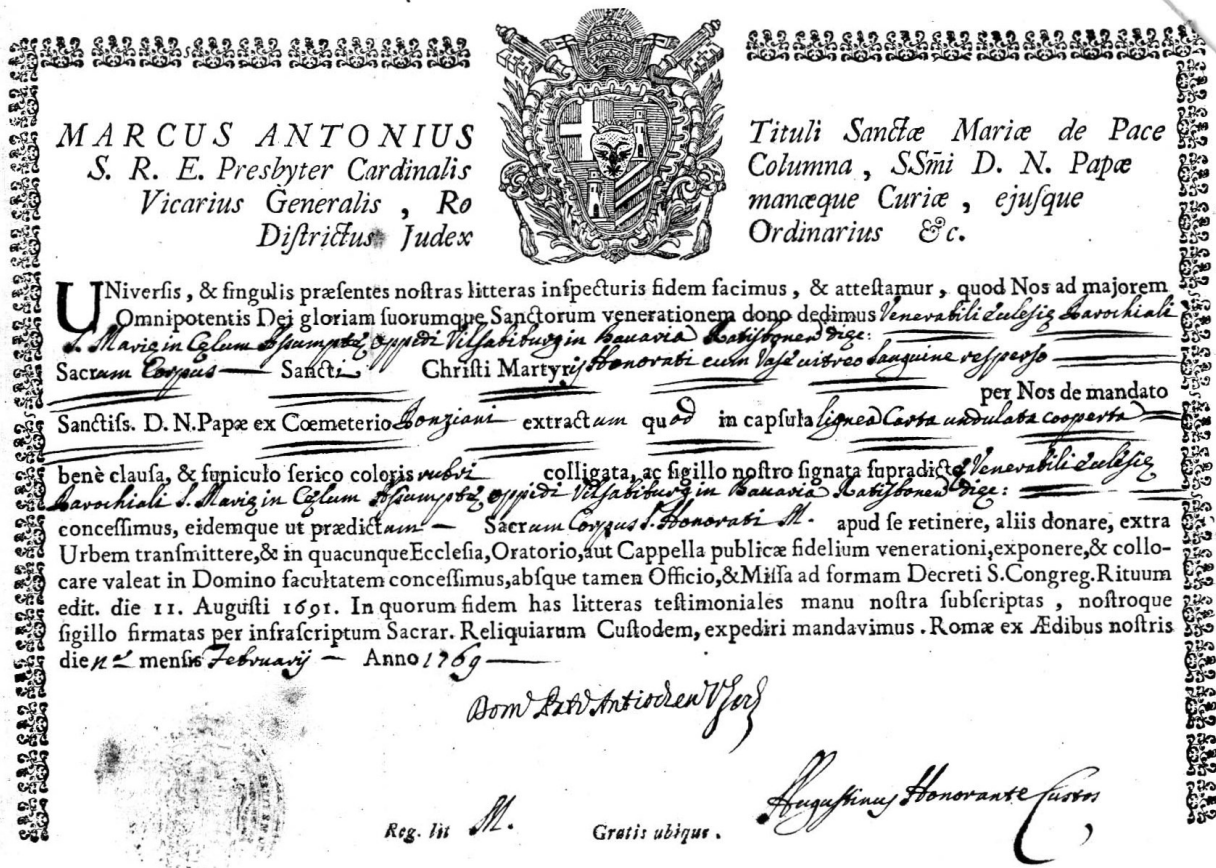 MARCUS ANTONIUS Tituli Sanctæ Mariæ de Pace
S. R. E. Presbyter Cardinalis Columna, SSm̃i D. N. Papæ
Vicarius Generalis, Ro manæque Curiæ, ejuſque
Diſtrictus Judex Ordinarius &c.
UNiverſis, & ſingulis præſentes noſtras litteras inſpecturis fidem facimus, & atteſtamur, quod Nos ad majorem
Omnipotentis Dei gloriam ſuorumque Sanctorum venerationem dono dedimus Venerabili Ecclesię Parochiali
S. Marię in Cęlum Assumptę oppidi Vilsabiburg in Bavaria Ratisbonen dięc:
Sacrum Corpus Sancti Christi Martyris Honorati cum Vase vitreo Sanguine resperso
per Nos de mandato
Sanctiſs. D. N. Papæ ex Cœmeterio Ponziani extractum quod in capſula lignea Carta undulata cooperta
benè clauſa, & funiculo ſerico coloris rubri colligata, ac ſigillo noſtro ſignata ſupradictę Venerabili Ecclesię
Parochiali S. Marię in Cęlum Assumptę oppidi Vilsabiburg in Bavaria Ratisbonen dięc:
conceſſimus, eidemque ut prædictum Sacrum Corpus S. Honorati M. apud ſe retinere, aliis donare, extra
Urbem tranſmittere, & in quacunque Eccleſia, Oratorio, aut Cappella publicæ fidelium venerationi, exponere, & collo-
care valeat in Domino facultatem conceſſimus, abſque tamen Officio, & Miſſa ad formam Decreti S. Congreg. Rituum
edit. die 11. Auguſti 1691. In quorum fidem has litteras teſtimoniales manu noſtra ſubſcriptas, noſtroque
ſigillo firmatas per infraſcriptum Sacrar. Reliquiarum Cuſtodem, expediri mandavimus. Romæ ex Ædibus noſtris
die menſis Februarij Anno 1769
Antiochen
Augustinus Honorante Custos
Reg. lit M. Gratis ubique.